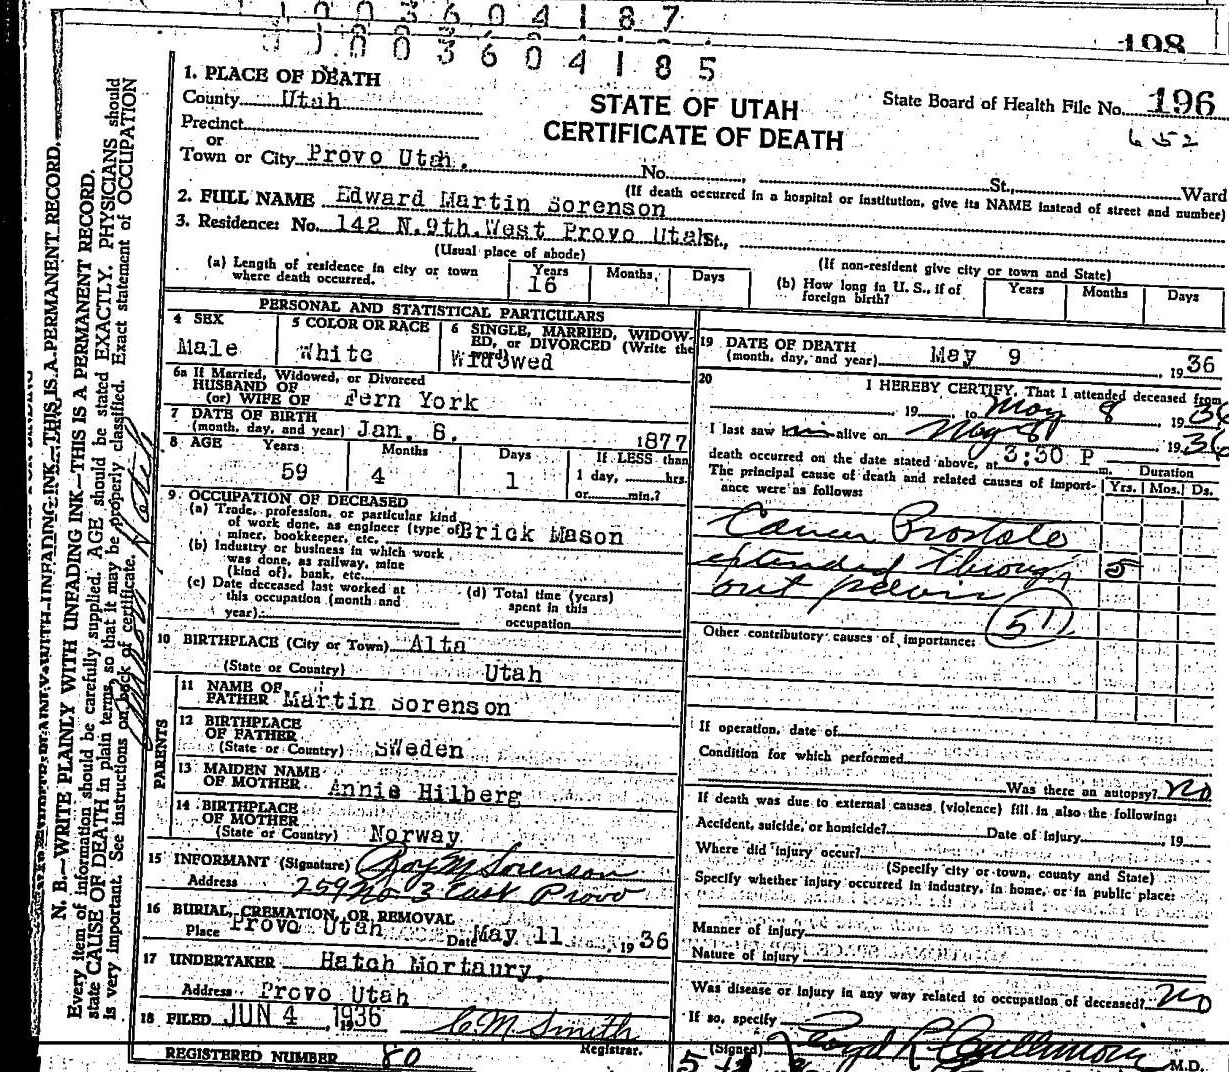 1003604187
1003604185
198
1. PLACE OF DEATH
County Utah
Precinct
or
Town or City Provo Utah.
STATE OF UTAH
CERTIFICATE OF DEATH
State Board of Health File No. 196
652
No. , St., Ward
(If death occurred in a hospital or institution, give its NAME instead of street and number)
2. FULL NAME Edward Martin Sorenson
3. Residence: No. 142 N. 9th. West Provo Utah St.,
(Usual place of abode)
(If non-resident give city or town and State)
(a) Length of residence in city or town where death occurred. Years 16 Months Days
(b) How long in U. S., if of foreign birth? Years Months Days
PERSONAL AND STATISTICAL PARTICULARS
4 SEX
Male
5 COLOR OR RACE
White
6 SINGLE, MARRIED, WIDOW-
ED, or DIVORCED (Write the
word)
Widowed
6a If Married, Widowed, or Divorced
HUSBAND OF
(or) WIFE OF Fern York
7 DATE OF BIRTH
(month, day, and year) Jan. 8. 1877
8 AGE Years Months Days If LESS than
59 4 1 1 day, hrs.
or min.?
9 OCCUPATION OF DECEASED
(a) Trade, profession, or particular kind
of work done, as engineer (type of)
miner, bookkeeper, etc. Brick Mason
(b) Industry or business in which work
was done, as railway, mine
(kind of), bank, etc.
(c) Date deceased last worked at
this occupation (month and
year)
(d) Total time (years)
spent in this
occupation
10 BIRTHPLACE (City or Town) Alta
(State or Country) Utah
PARENTS
11 NAME OF
FATHER Martin Sorenson
12 BIRTHPLACE
OF FATHER
(State or Country) Sweden
13 MAIDEN NAME
OF MOTHER Annie Hilberg
14 BIRTHPLACE
OF MOTHER
(State or Country) Norway
15 INFORMANT (Signature) Roy M Sorenson
Address 259 No. 3 East Provo
16 BURIAL, CREMATION, OR REMOVAL
Place Provo Utah Date May 11 1936
17 UNDERTAKER Hatch Mortaury.
Address Provo Utah
18 FILED JUN 4, 1936 C M Smith
Registrar.
REGISTERED NUMBER 80
19 DATE OF DEATH
(month, day, and year) May 9 1936
20 I HEREBY CERTIFY, That I attended deceased from
19 , to May 8 1936
I last saw him alive on May 8 1936
death occurred on the date stated above, at 3:30 P m.
The principal cause of death and related causes of import-
ance were as follows:
Duration
Yrs. Mos. Ds.
Cancer Prostate
extended through 5
out pelvis
51
Other contributory causes of importance:
If operation, date of
Condition for which performed
Was there an autopsy? No
If death was due to external causes (violence) fill in also the following:
Accident, suicide, or homicide? Date of injury , 19
Where did injury occur?
(Specify city or town, county and State)
Specify whether injury occurred in industry, in home, or in public place:
Manner of injury
Nature of injury
Was disease or injury in any way related to occupation of deceased? No
If so, specify
(Signed) M.D.
N. B.—WRITE PLAINLY WITH UNFADING INK—THIS IS A PERMANENT RECORD.
Every item of information should be carefully supplied. AGE should be stated EXACTLY. PHYSICIANS should
state CAUSE OF DEATH in plain terms, so that it may be properly classified. Exact statement of OCCUPATION
is very important. See instructions on back of certificate.